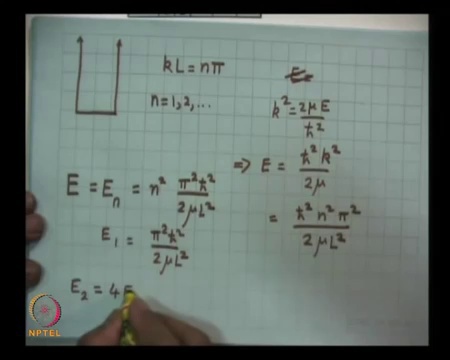 kL = nπ
n = 1, 2, ...
E
k² = 2μE / ħ²
⇒ E = ħ² k² / 2μ
= ħ² n² π² / 2μL²
E = Eₙ = n² π²ħ² / 2μL²
E₁ = π²ħ² / 2μL²
E₂ = 4E
NPTEL